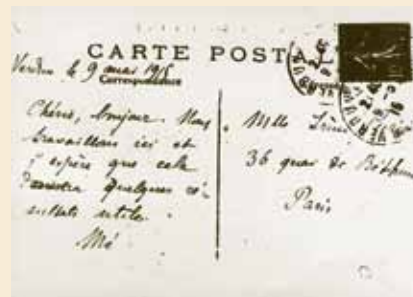 CARTE POSTALE
Verdun le 9 mai 1915
Correspondance
Chérie, bonjour. Nous
travaillons ici et
j'espère que cela
donnera quelques ré-
sultats utiles.
Mé
Mlle Irène
36 quai de Béthune
Paris